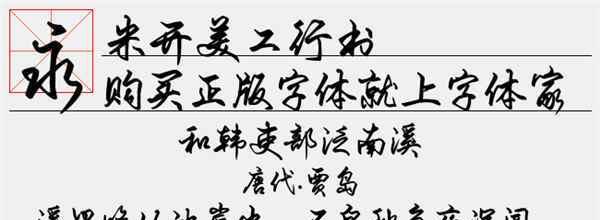 永
米开美工行书
购买正版字体就上字体家
和韩吏部泛南溪
唐代·贾岛